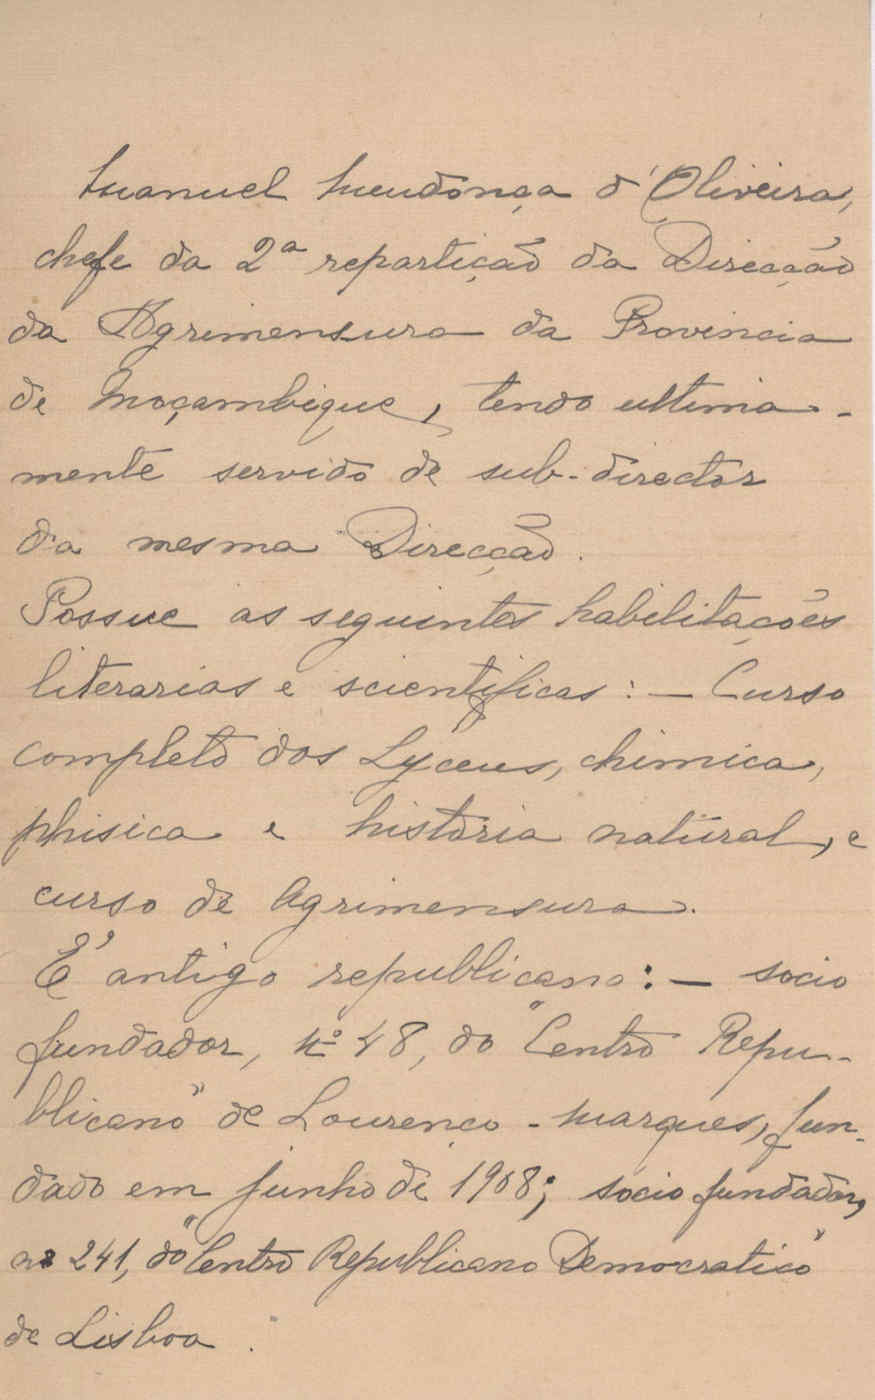 Manuel Mendonça d'Oliveira,
chefe da 2ª repartição da Direcção
da Agrimensura da Provincia
de Moçambique, tendo ultima-
mente servido de sub-director
da mesma Direcção.
Possue as seguintes habilitações
literarias e scientificas: — Curso
completo dos Lyceus, chimica,
phisica e historia natural, e
curso de Agrimensura.
É antigo republicano: — socio
fundador, nº 48, do "Centro Repu-
blicano" de Lourenço-Marques, fun-
dado em junho de 1908; socio fundador,
nº 241, do "Centro Republicano Democratico"
de Lisboa.